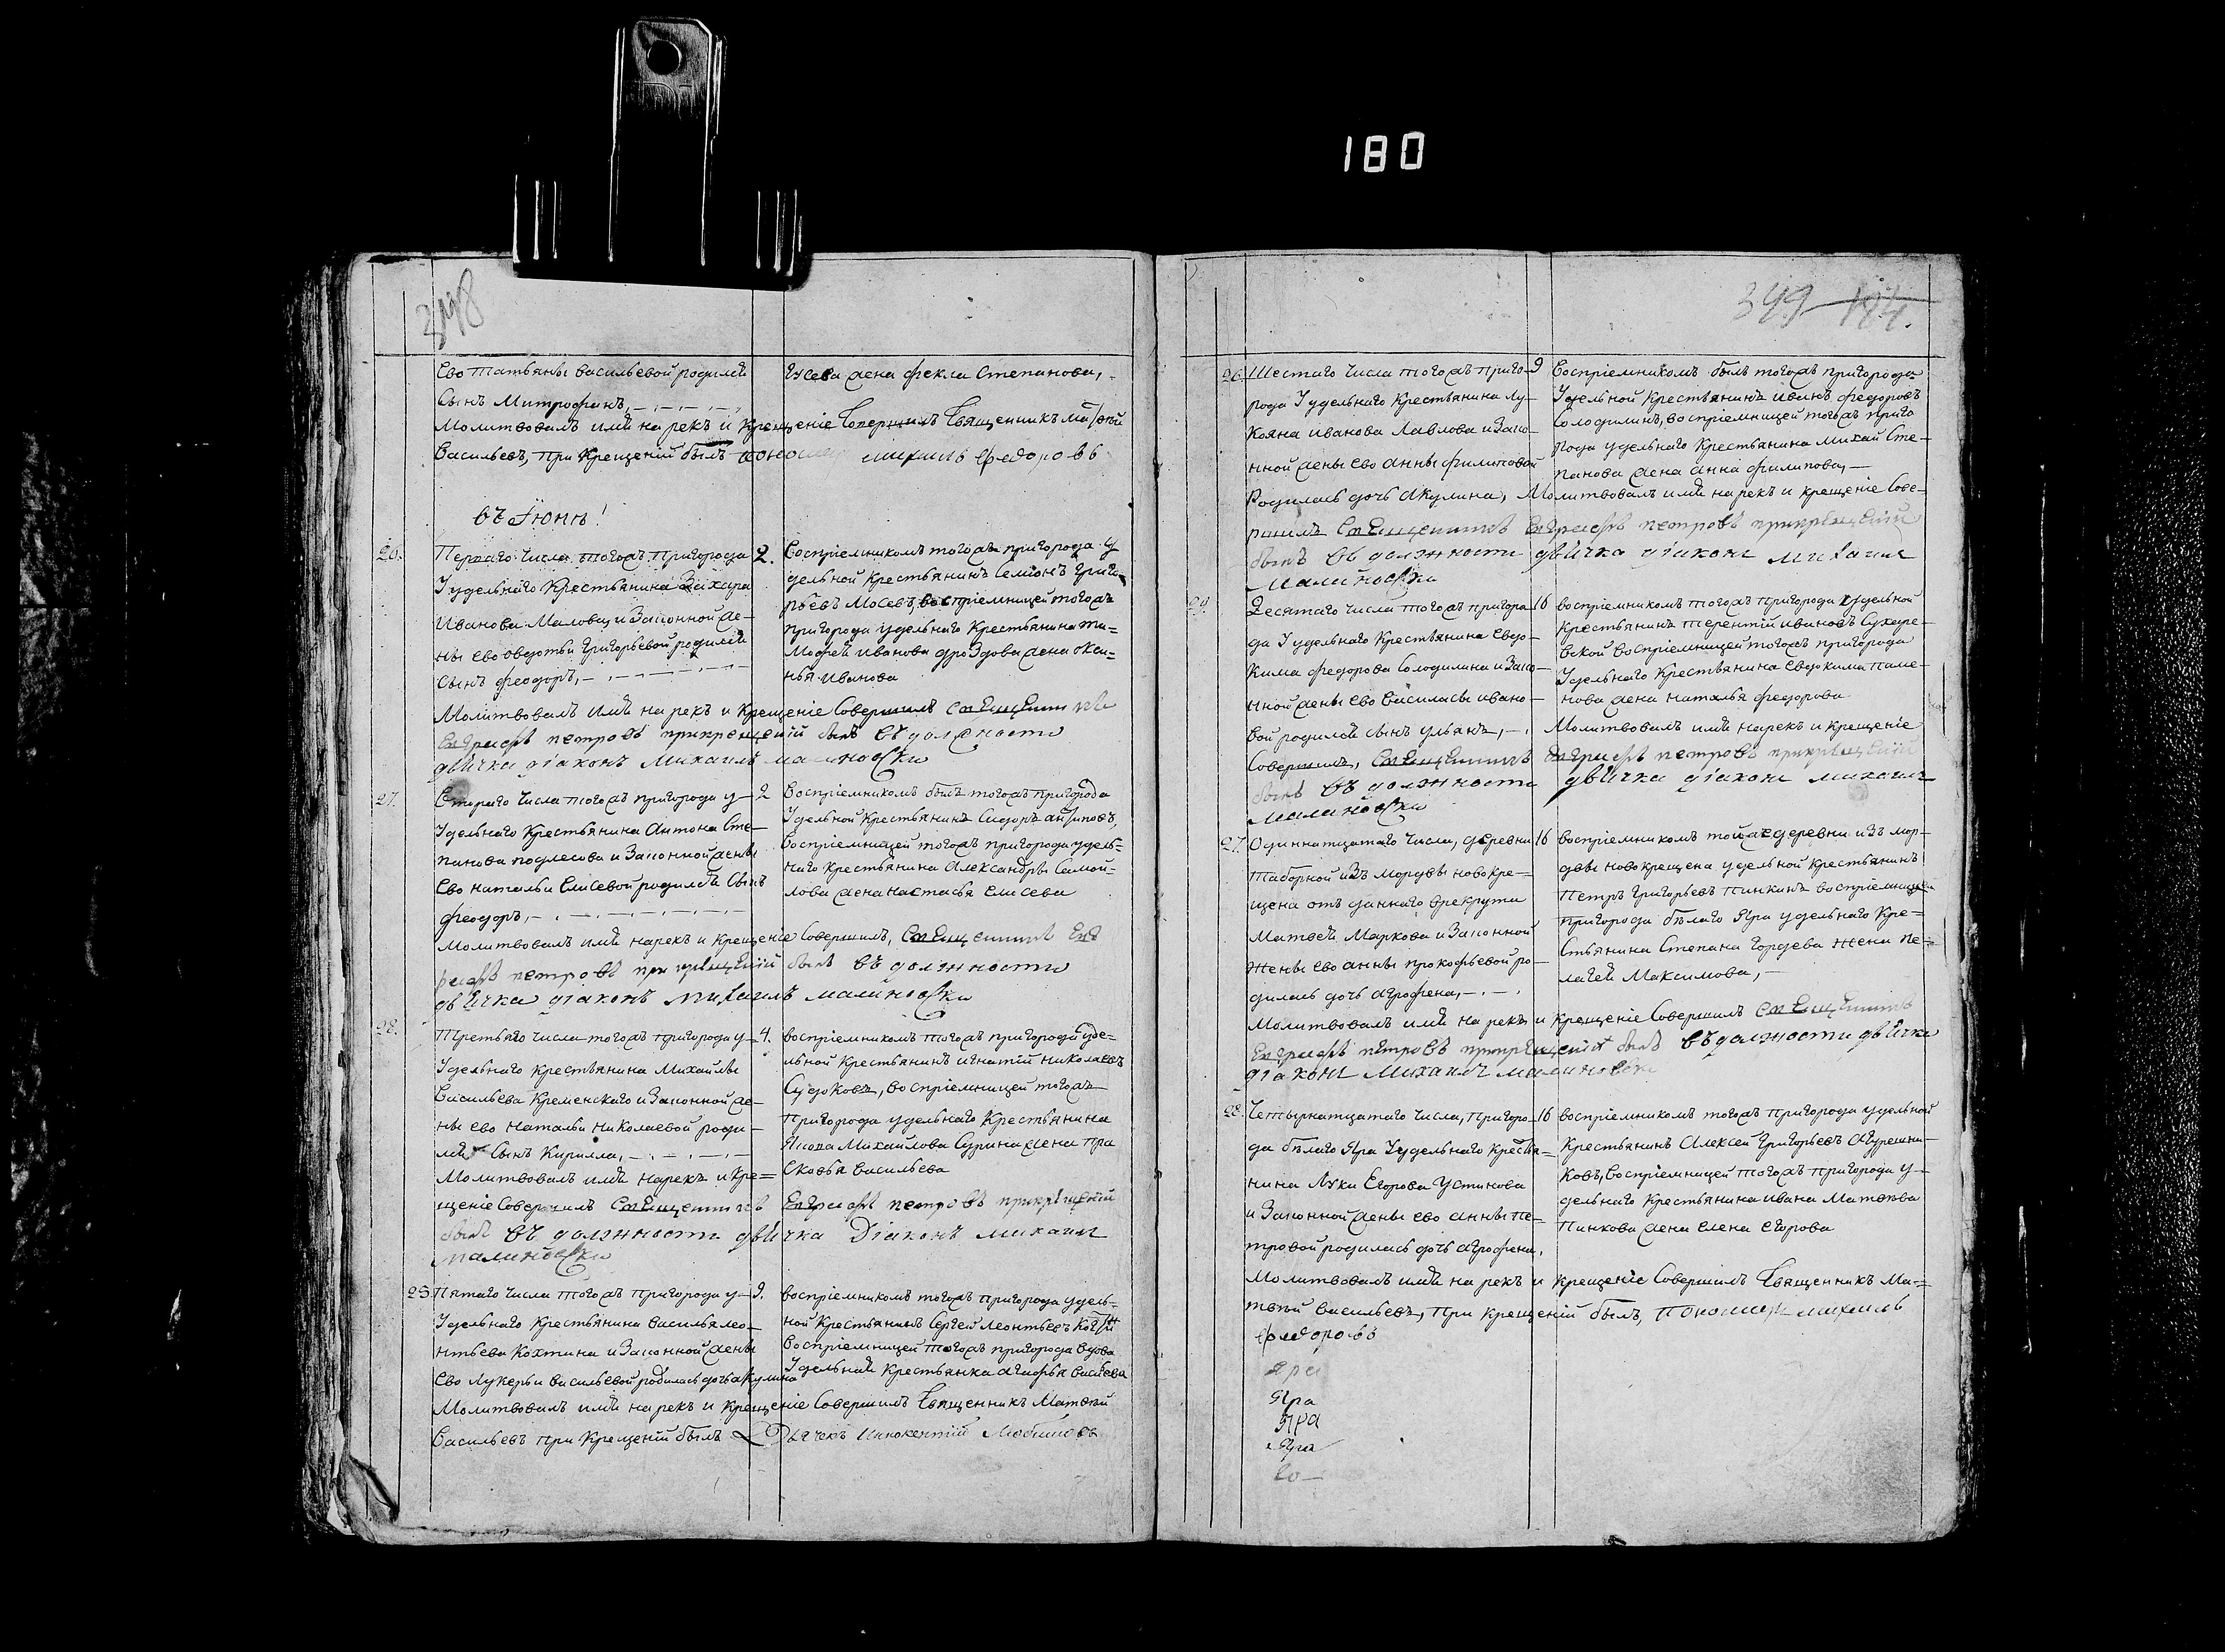 180
348
Ево татьяны васильевой родился
Сынъ Митрофанъ,
Гусева жена фекла Степанова,
Молитвовалъ имя нарекъ и крещеніе Совершилъ Священникъ Матвѣй
Васильевъ, при крещеніи былъ пономарь михаилъ федоровъ
въ Іюнѣ!
26.
Перваго числа тогожъ пригорода
Удельнаго Крестьянина Захара
Иванова Малова и Законной же-
ны ево овдотьи Григорьевой родился
Сынъ феодоръ,
2.
Воспріемникомъ тогожъ пригорода у
дельной крестьянинъ Семіонъ Григо-
рьевъ Мосевъ, воспріемницей тогожъ
пригорода удельнаго Крестьянина ти=
мофея иванова дроздова жена окси=
нья иванова
Молитвовалъ имя нарекъ и крещеніе Совершилъ Священникъ
Евграфъ петровъ прикрещеніи былъ въ должности
двичка діаконъ Михаилъ малиновски
27.
Втораго числа тогожъ пригорода у-
Удельнаго Крестьянина Антона Сте-
панова подлесова и Законной жены
Ево натальи Елисевой родился Сынъ
феодоръ,
2
Воспріемникомъ былъ тогожъ пригорода
Удельной Крестьянинъ Сидоръ антиповъ,
Воспріемницей тогожъ пригорода удель=
наго крестьянина Александры Самой=
лова жена настасья Елисева
Молитвовалъ имя нарекъ и крещеніе Совершилъ, Священникъ Евг
рафъ петровъ при крещеніи былъ въ должности
двичка діаконъ михаилъ малиновски
28.
Третьяго числа тогожъ пригорода у-
Удельнаго крестьянина Михайлы
Васильева Кременскаго и Законной же-
ны ево натальи николаевой роди-
лся Сынъ Кирилла,
4.
воспріемникомъ тогожъ пригорода уде-
льной крестьянинъ игнатій николаевъ
Судоковъ, воспріемницей тогожъ
пригорода удельнаго крестьянина
Якова Михайлова Сурина жена пра
Сковья васильева
Молитвовалъ имя нарекъ и кре=
щеніе Совершилъ Священникъ Евграфъ петровъ прикрещеніи
былъ въ должности двичка Діаконъ михаилъ
малиновски
25.
Пятаго числа тогожъ пригорода у-
Удельнаго крестьянина василья лео-
нтьева Кохтина и Законной жены
Ево Лукерьи васильевой родилась дочь акулина
9.
воспріемникомъ тогожъ пригорода удель=
ной крестьянинъ Сергей Леонтьевъ
Воспріемницей тогожъ пригорода вдова
Удельная крестьянка агафья
Молитвовалъ имя нарекъ и крещеніе Совершилъ Священникъ Матвѣй
Васильевъ при крещеніи былъ Дьячекъ инокентій Любимовъ
349
174.
26.
Шестаго числа тогожъ приго-
рода Удельнаго крестьянина лу-
кояна иванова Павлова и Зако-
нной жены ево анны филиповой
Родилась дочь акулина,
9
Воспріемникомъ былъ тогожъ пригорода
Удельной крестьянинъ иванъ федоровъ
Солодилинъ, воспріемницей тогожъ приго
рода удельнаго крестьянина Сте-
панова жена анна филипова,
Молитвовалъ имя нарекъ и крещеніе Сове-
ршилъ Священникъ Евграфъ петровъ прикрещеніи
былъ въ должности двичка діаконъ михаилъ
малиновски
Десятаго числа тогожъ пригоро-
да Удельнаго крестьянина Евдо-
кима федорова Солодилина и Зако-
нной жены ево Василисы ивано-
вой родился сынъ ульянъ,
16
воспріемникомъ тогожъ пригорода удельной
крестьянинъ терентій ивановъ Сухаре-
вской воспріемницей тогожъ пригорода
Удельнаго крестьянина евдокима паме-
нова жена наталья федорова
Молитвовалъ имя нарекъ и крещеніе
Совершилъ, Священникъ Евграфъ петровъ прикрещеніи
былъ въ должности двичка діаконъ михаилъ
малиновски
27.
Одиннатцатаго числа, деревни
Таборной изъ мордвы новокре=
щена отъ даннаго врекруты
Матвея Маркова и Законной
Жены ево анны прокофьевой ро-
дилась дочь агрофена,
16
воспріемникомъ тойже деревни изъ мор-
двы новокрещена удельной крестьянинъ
Петръ Григорьевъ пинкинъ воспріемницей
пригорода бѣлаго Яра удельнаго Кре=
Стьянина Степана Гордева жена пе-
лагея Максимова,
Молитвовалъ имя нарекъ и крещеніе Совершилъ Священникъ
Евграфъ петровъ прикрещеніи былъ въ должности двичка
діаконъ михаилъ малиновски
28.
Четырнатцатаго числа, пригоро-
да бѣлаго Яра Удельнаго крестья=
нина Луки Егорова Устинова
и Законной жены ево анны пе=
тровой родилась дочь агрофена,
16
воспріемникомъ тогожъ пригорода удельной
крестьянинъ Алексей Григорьевъ
ковъ, воспріемницей тогожъ пригорода у-
дельнаго крестьянина ивана Матвѣева
Пинкова жена елена егорова
Молитвовалъ имя нарекъ и крещеніе Совершилъ Священникъ Ма=
твѣй васильевъ, при крещеніи былъ, пономарь михаилъ
федоровъ
яра
Яра
Яра
Яра
во